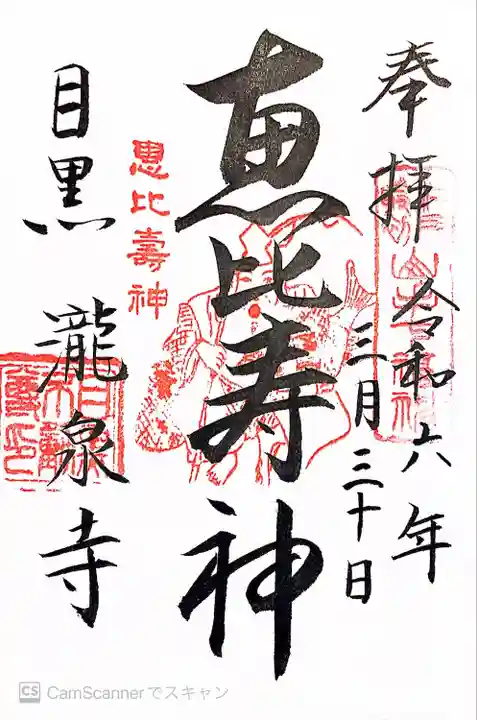 奉拝
令和六年
三月三十日
恵比寿神
恵比壽神
目黒 瀧泉寺
CS CamScannerでスキャン